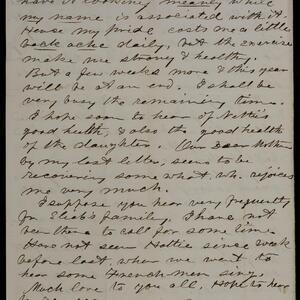 have it looking meanly while
my name is associated with it.
Hense my pride, costs me a little
back ache daily, but the exercise
make me strong & healthy.
But a few weeks more & this year
will be at an end. I shall be
very busy the remaining time.
I hope soon to hear of Nettie's
good health, & also the good health
of the daughter. Our Dear Mother
by my last letter, seems to be
recovering some what, wh. rejoices
me very much.
I suppose you hear very frequently
fr. Eliab's family. I have not
been there to call for some time.
Have not seen Hattie since week
before last, when we went to
hear some Frenchmen sing.
Much love to you all. Hope to hear